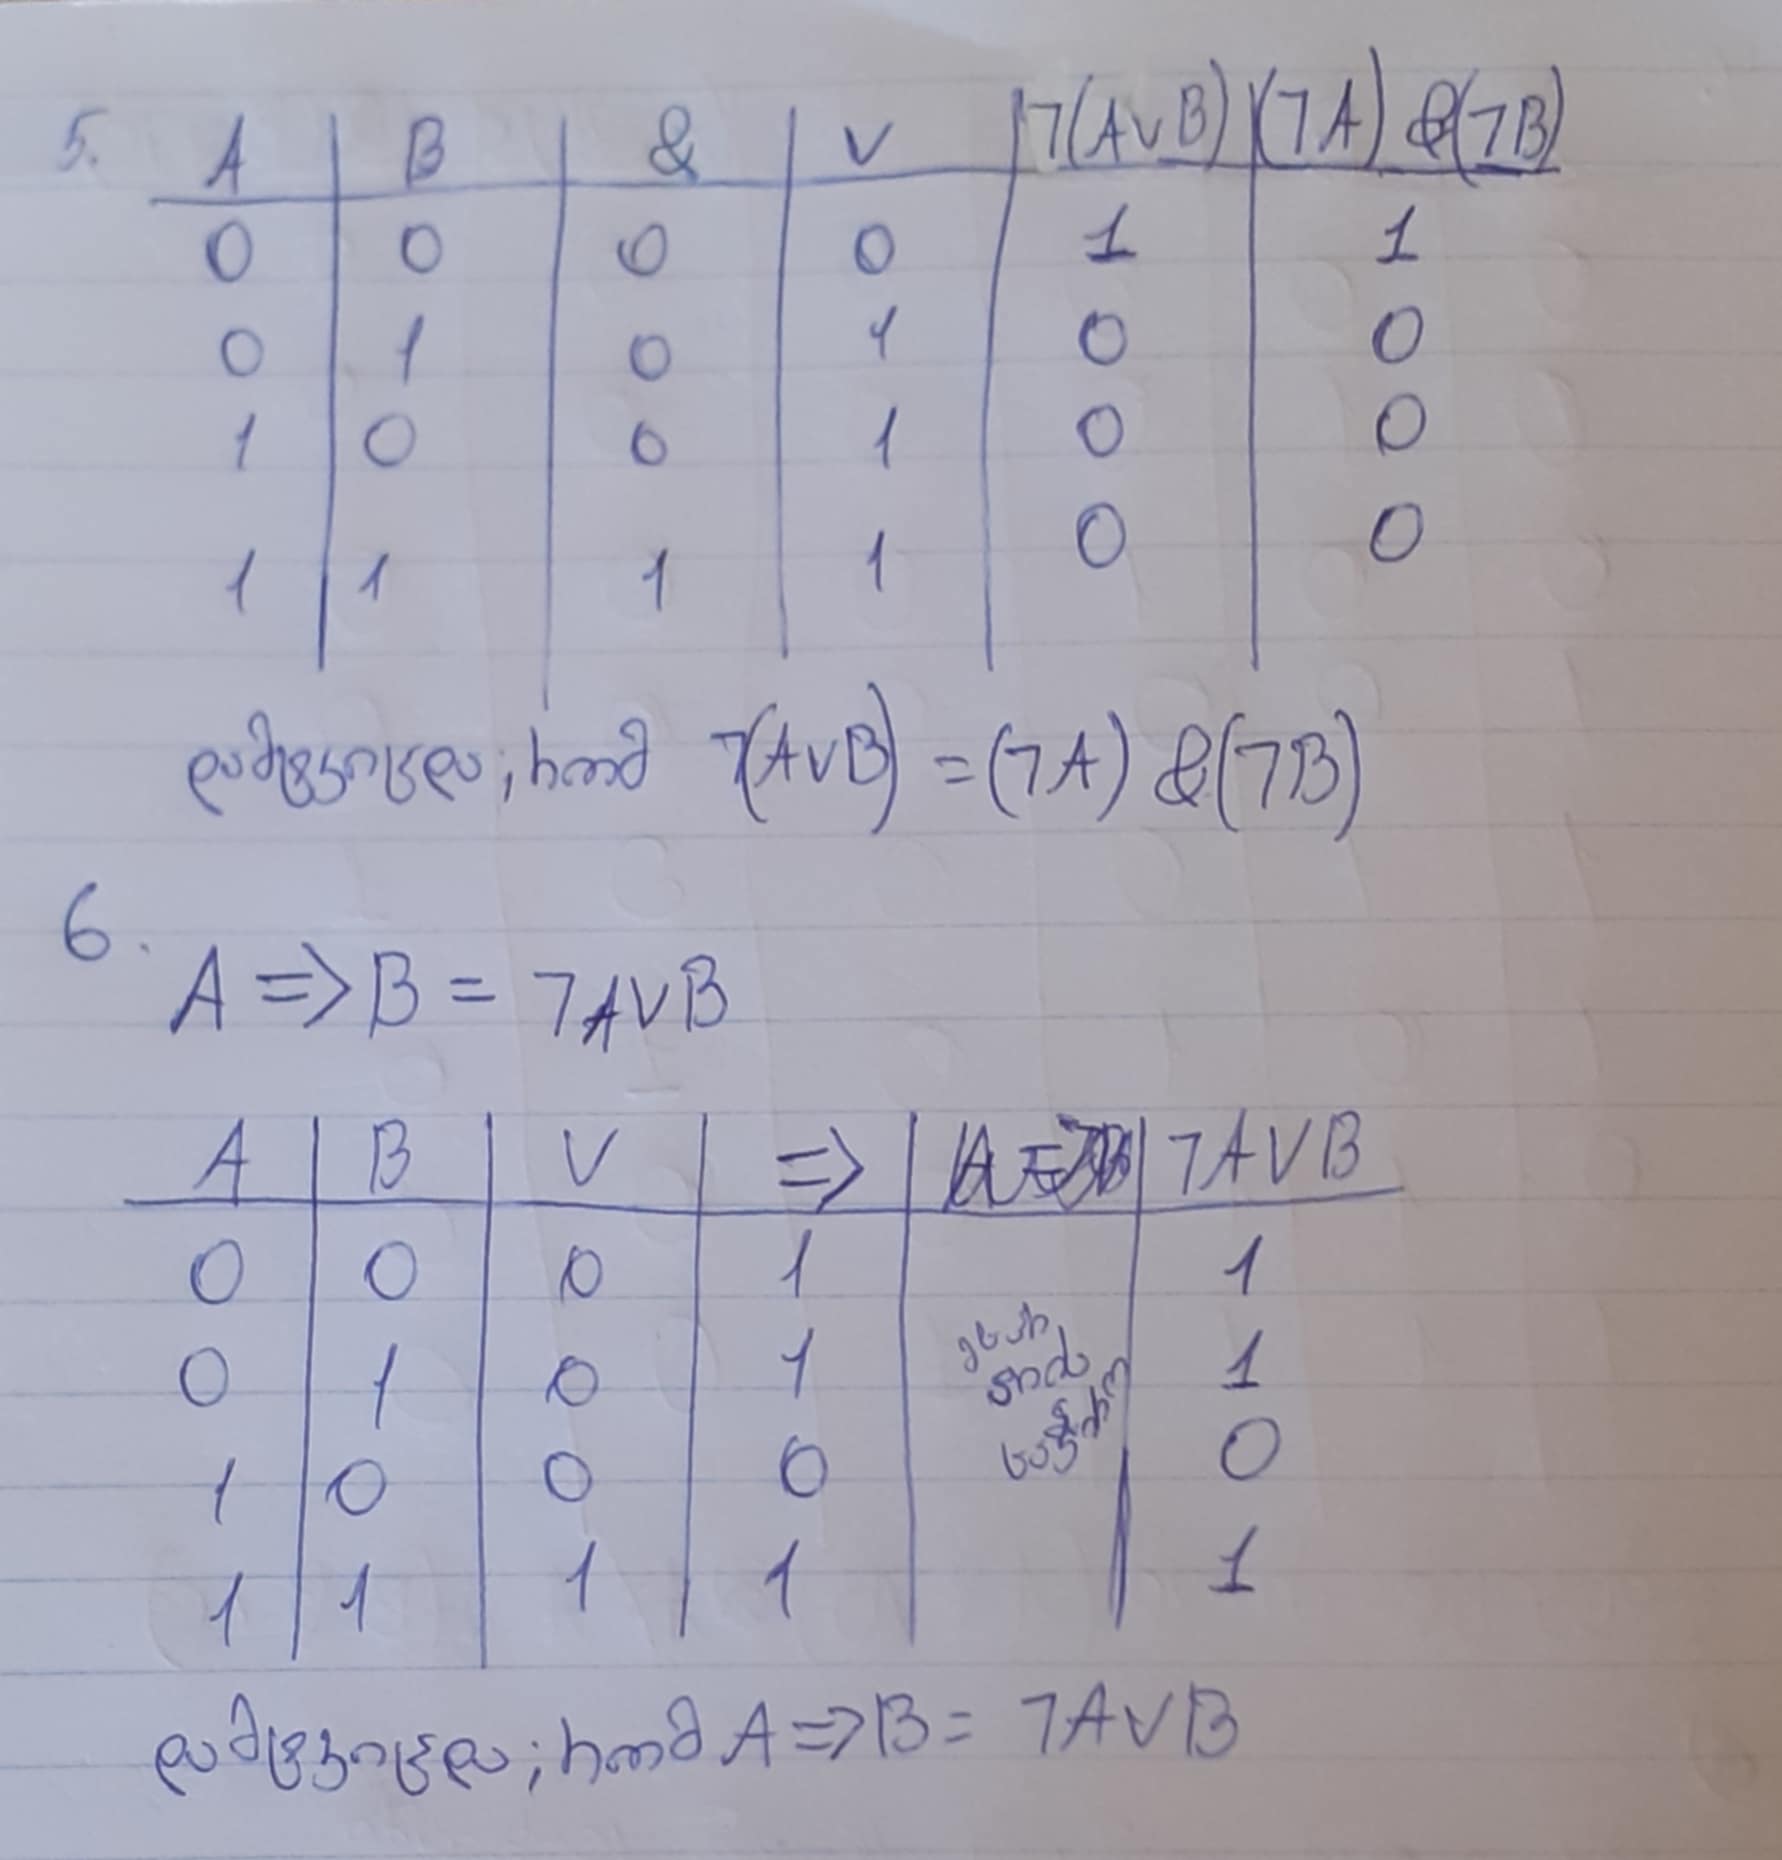 5. A | B | & | V | ꓶ(AVB) | (ꓶA) & (ꓶB)
0 | 0 | 0 | 0 | 1 | 1
0 | 1 | 0 | 1 | 0 | 0
1 | 0 | 0 | 1 | 0 | 0
1 | 1 | 1 | 1 | 0 | 0
დამტკიცდა, რომ ꓶ(AVB) = (ꓶA) & (ꓶB)
6.
A => B = ꓶAVB
A | B | V | => | ꓶAVB
0 | 0 | 0 | 1 | 1
0 | 1 | 0 | 1 | 1
1 | 0 | 0 | 0 | 0
1 | 1 | 1 | 1 | 1
დამტკიცდა, რომ A => B = ꓶAVB